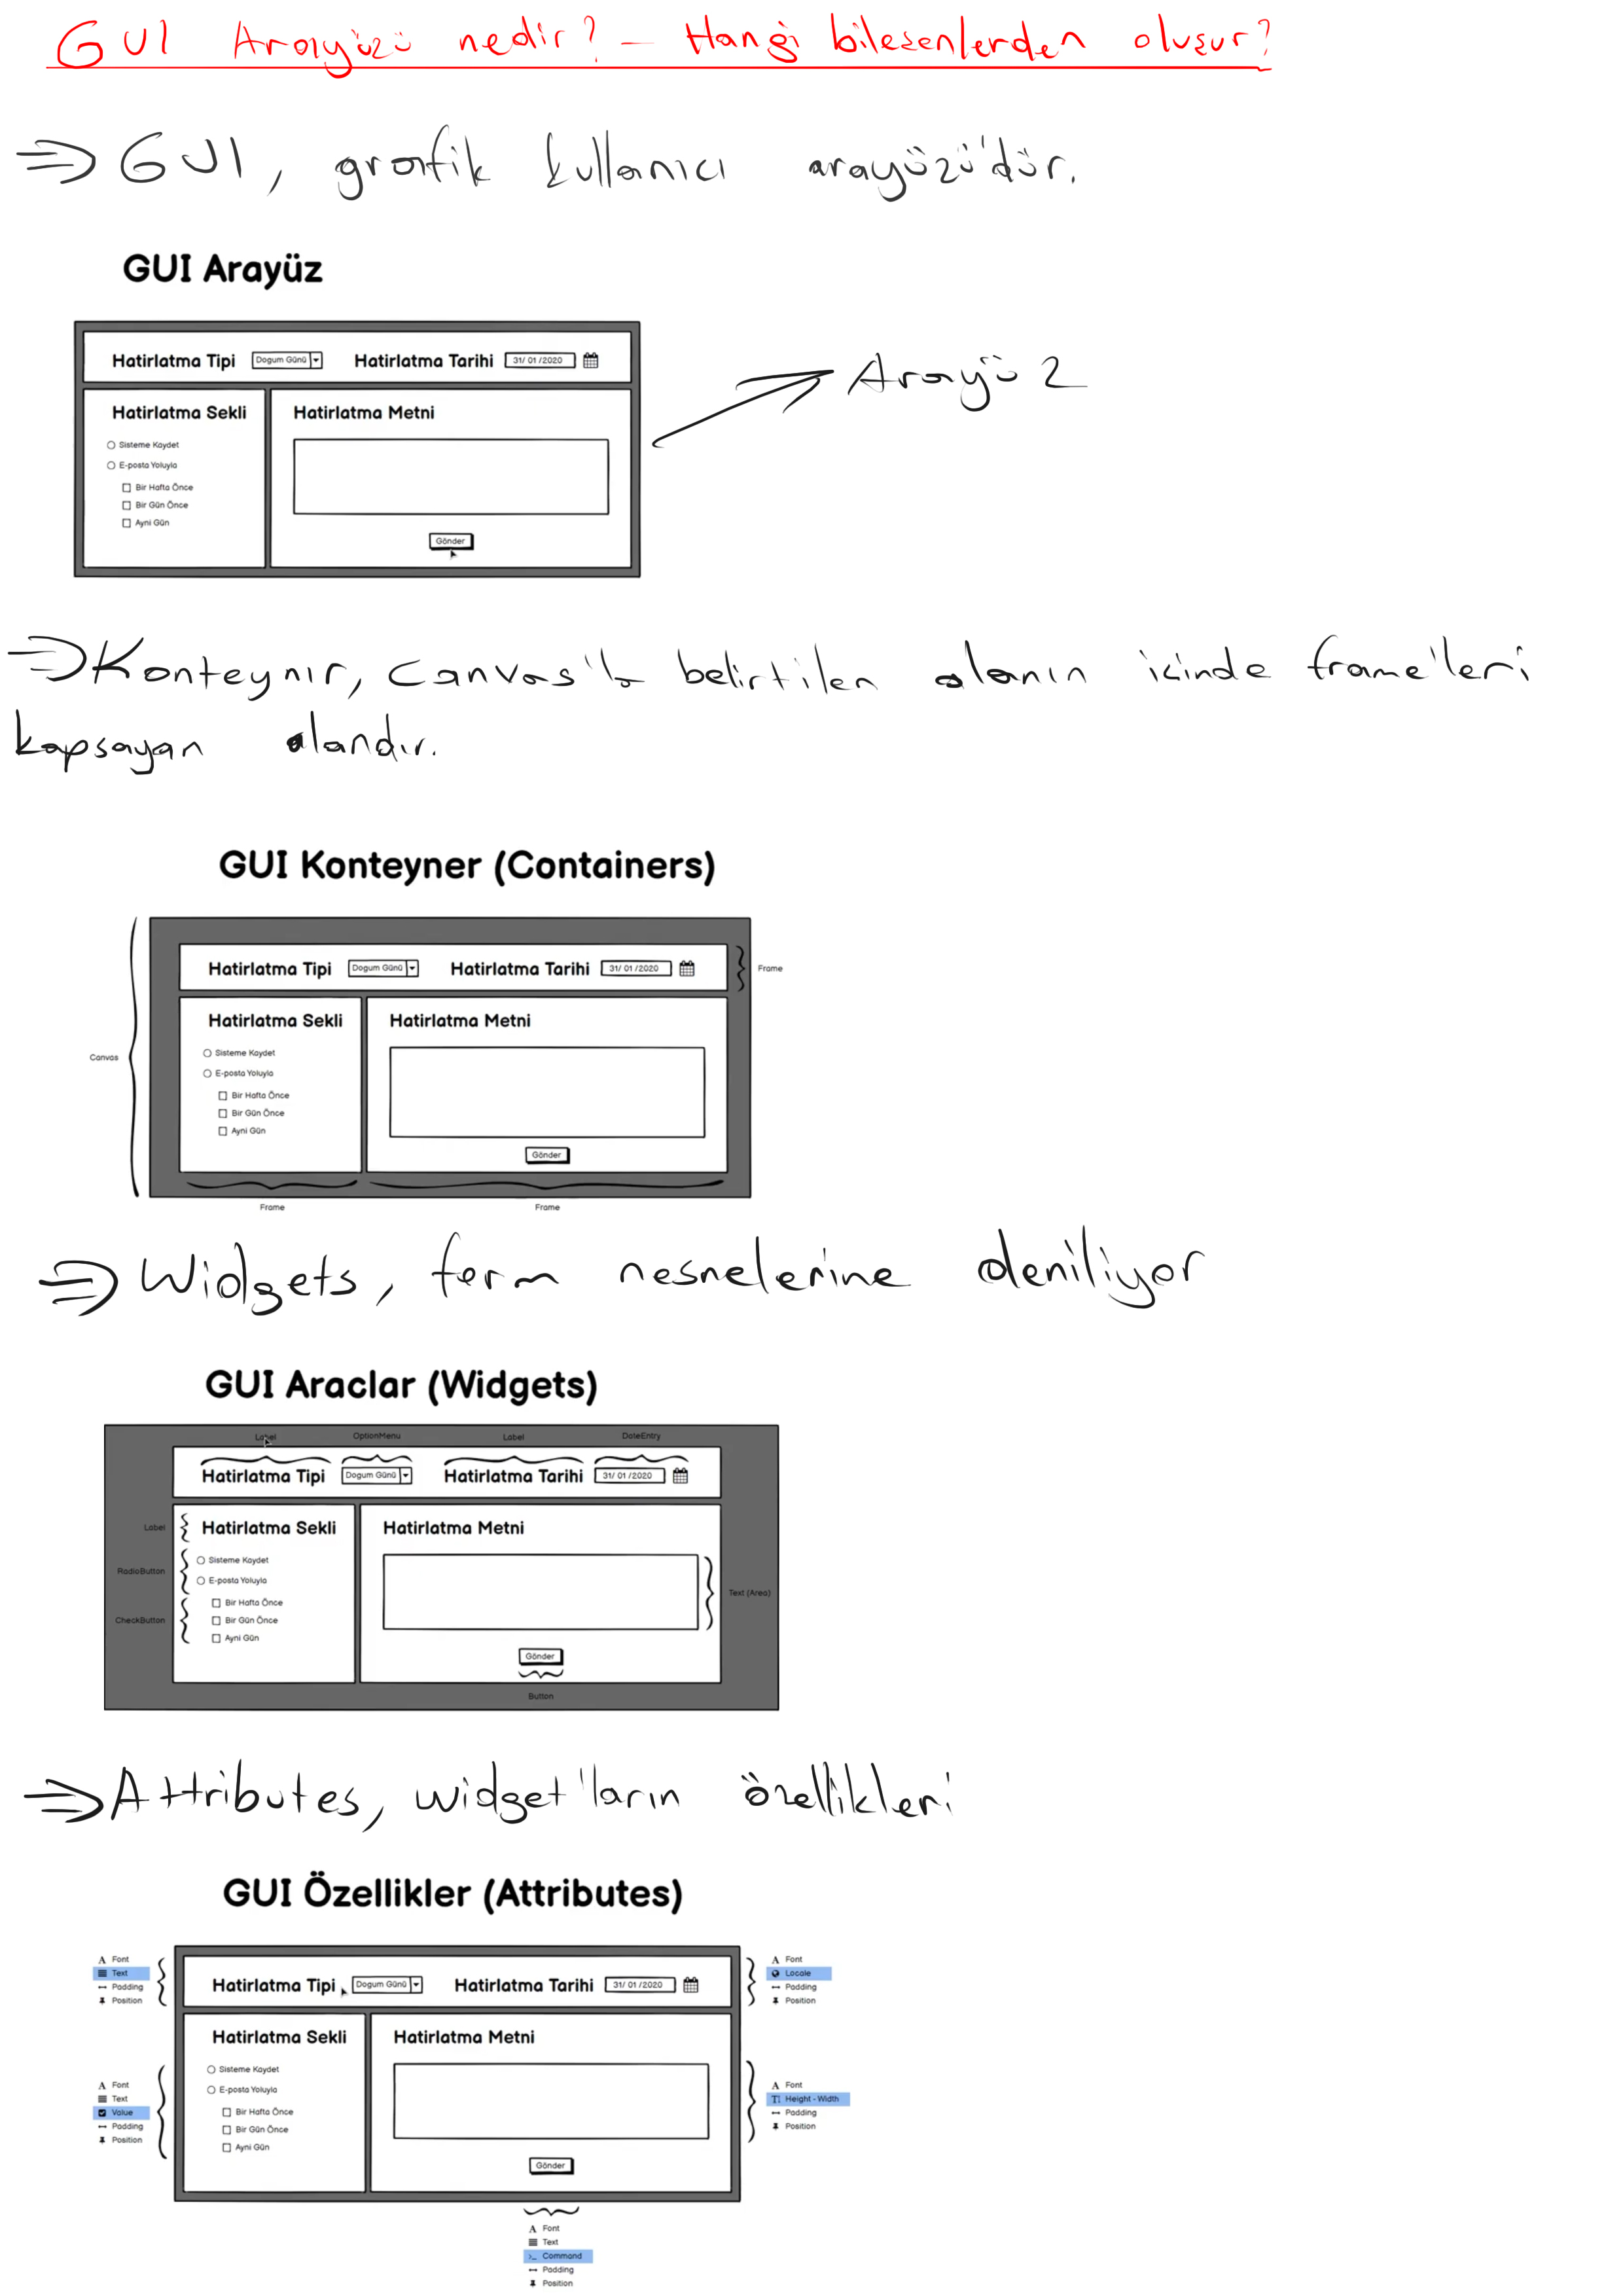 GUI Arayüzü nedir? - Hangi bileşenlerden oluşur?
⇒ GUI, grafik kullanıcı arayüzü'dür.
GUI Arayüz
Hatirlatma Tipi Dogum Günü Hatirlatma Tarihi 31/ 01 /2020
Arayüz
Hatirlatma Sekli Hatirlatma Metni
Sisteme Kaydet
E-posta Yoluyla
Bir Hafta Önce
Bir Gün Önce
Ayni Gün
Gönder
⇒ Konteynır, Canvas'la belirtilen alanın içinde frame'leri
kapsayan alandır.
GUI Konteyner (Containers)
Hatirlatma Tipi Dogum Günü Hatirlatma Tarihi 31/ 01 /2020 Frame
Hatirlatma Sekli Hatirlatma Metni
Sisteme Kaydet
Canvas
E-posta Yoluyla
Bir Hafta Önce
Bir Gün Önce
Ayni Gün
Gönder
Frame Frame
⇒ Widgets, form nesnelerine deniliyor
GUI Araclar (Widgets)
Label OptionMenu Label DateEntry
Hatirlatma Tipi Dogum Günü Hatirlatma Tarihi 31/ 01 /2020
Label Hatirlatma Sekli Hatirlatma Metni
Sisteme Kaydet
RadioButton
E-posta Yoluyla
Text (Area)
Bir Hafta Önce
CheckButton Bir Gün Önce
Ayni Gün
Gönder
Button
⇒ Attributes, widget'ların özellikleri
GUI Özellikler (Attributes)
Font
Text
Padding
Position
Hatirlatma Tipi Dogum Günü Hatirlatma Tarihi 31/ 01 /2020
Font
Locale
Padding
Position
Hatirlatma Sekli Hatirlatma Metni
Sisteme Kaydet
E-posta Yoluyla
Bir Hafta Önce
Bir Gün Önce
Ayni Gün
Font
Text
Value
Padding
Position
Font
Height - Width
Padding
Position
Gönder
Font
Text
Command
Padding
Position